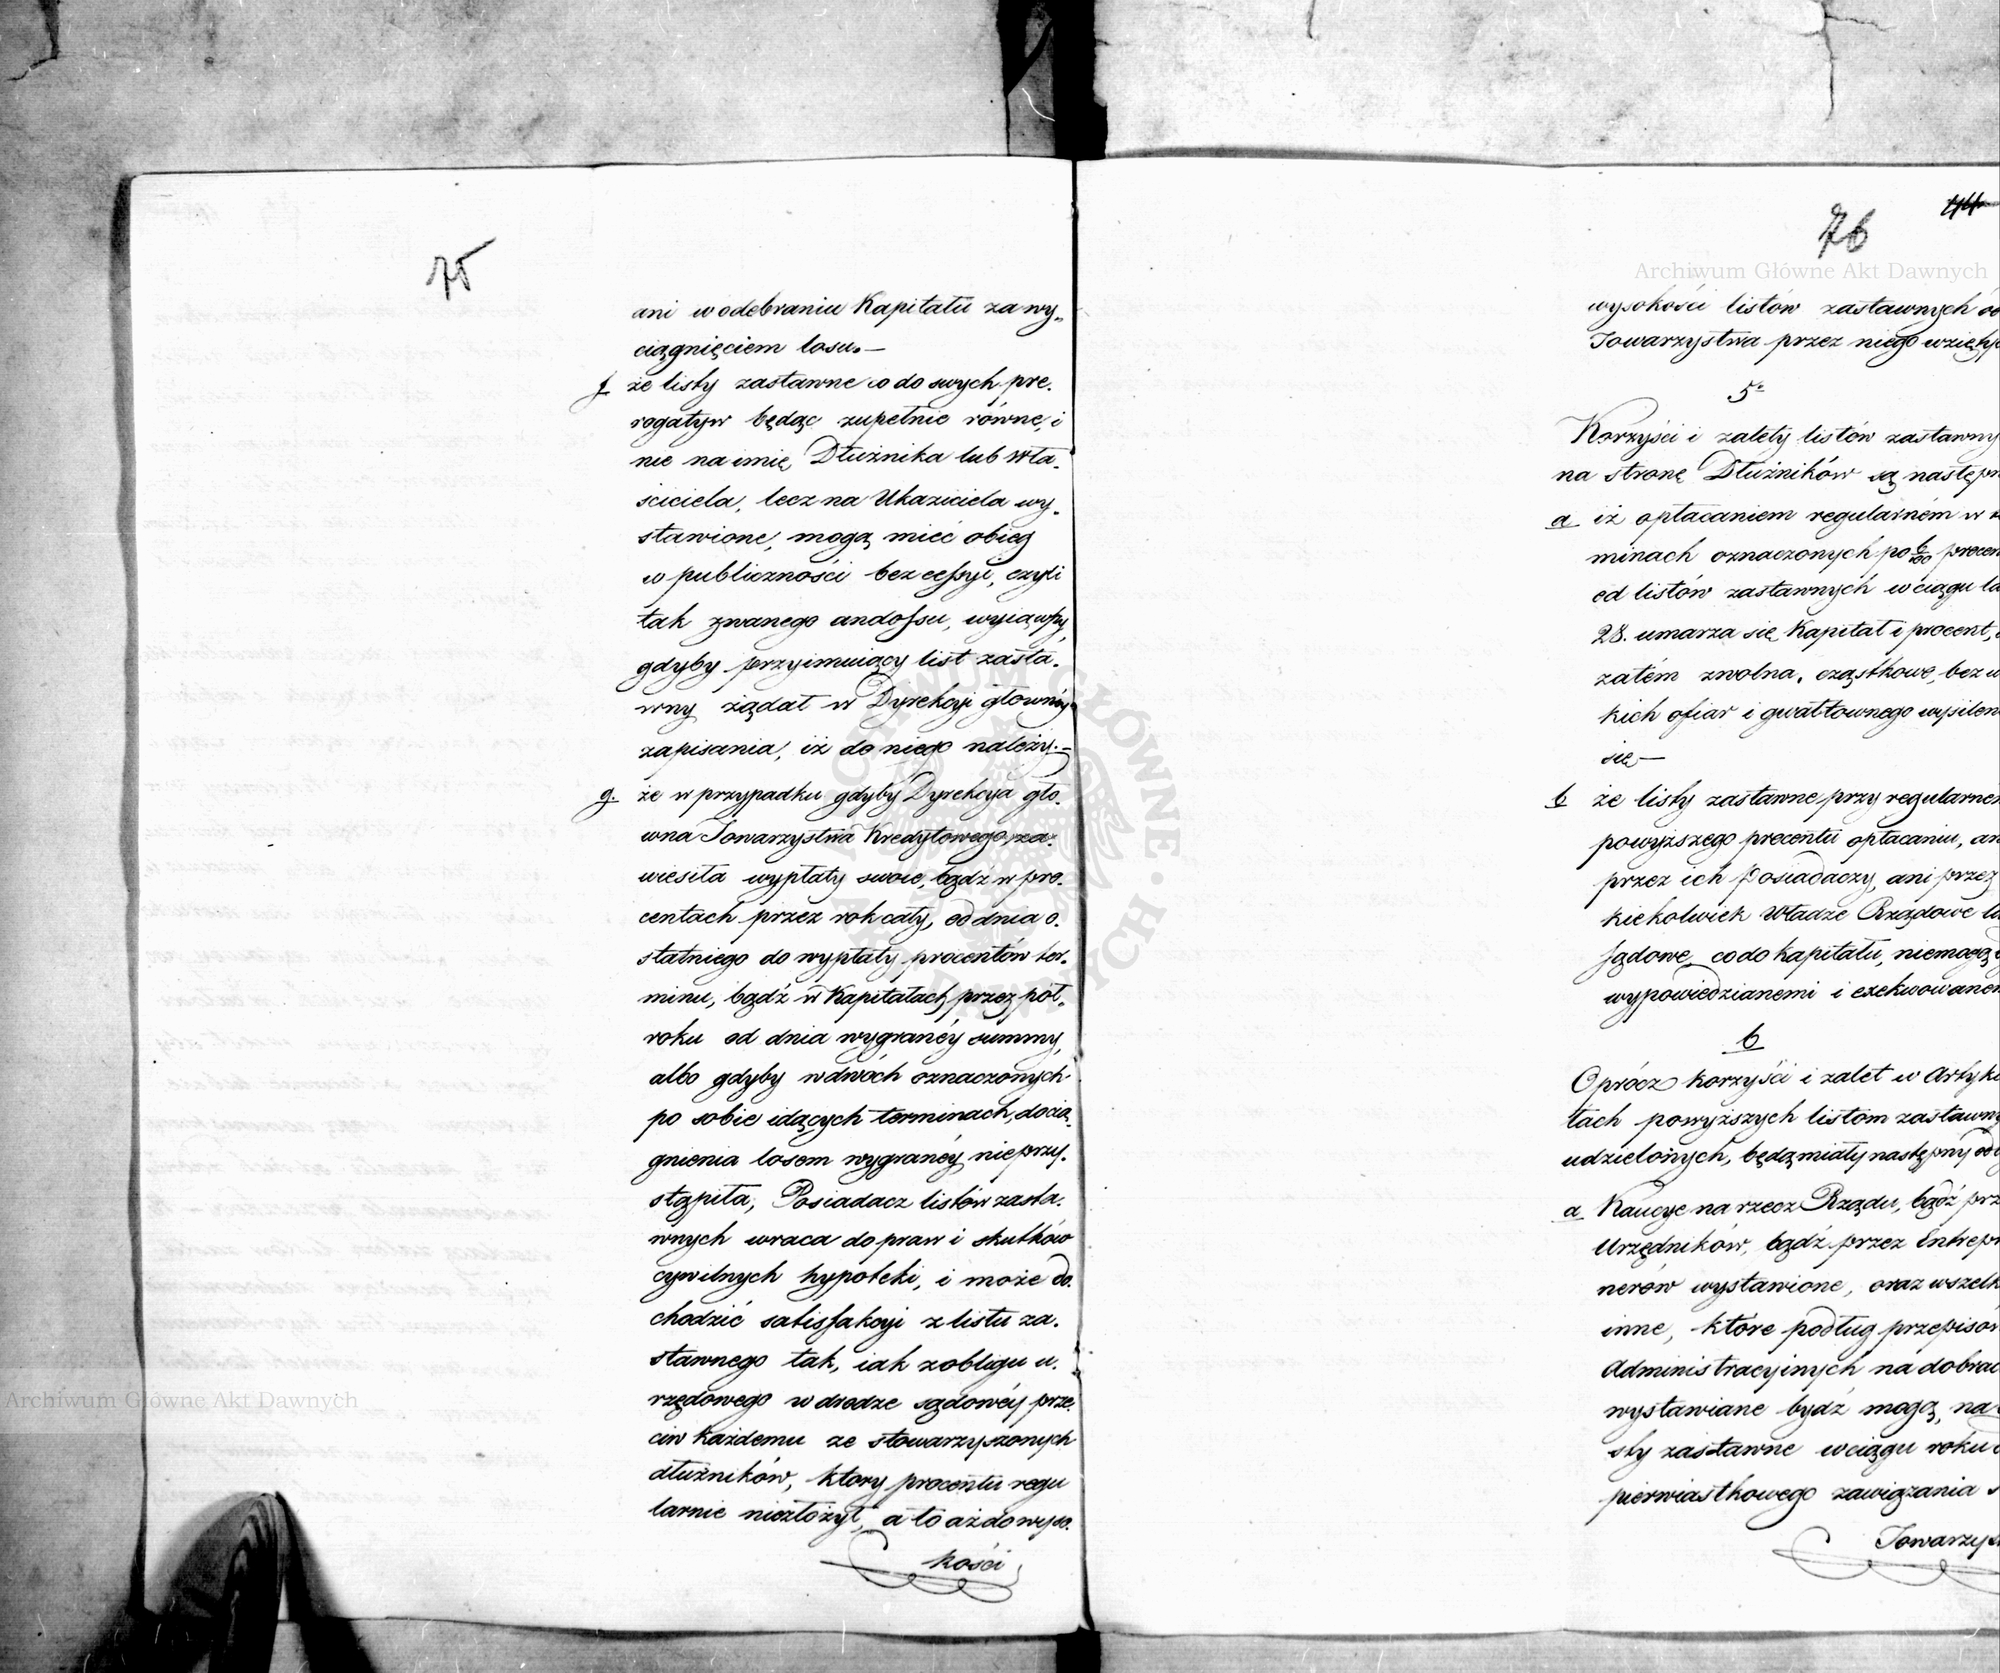 75
ani w odebraniu Kapitału za wy„
ciągnięciem losu.—
f. że listy zastawne co do swych pre.
rogatyw będąc zupełnie równe, i
nie na imię Dłużnika lub Wła.
ściciela, lecz na Ukaziciela wy.
stawione, mogą mieć obieg
w publiczności bez cessyi, czyli
tak zwanego andossu, wyiąwszy,
gdyby przyimuiący list zasta.
wny żądał w Dyrekcyi główney
zapisania, iż do niego należy.—
g. że w przypadku gdyby Dyrekcya głó.
wna Towarzystwa Kredytowego, za.
wiesiła wypłaty swoie, bądź w pro.
centach przez rok cały, od dnia o.
statniego do wypłaty procentów ter.
minu, bądź w Kapitałach przez pół„
roku od dnia wygranéy summy,
albo gdyby w dwóch oznaczonych
po sobie idących terminach, do cią.
gnienia losem wygranéy nieprzy.
stąpiła, Posiadacz listów zasta.
wnych wraca do praw i skutków
cywilnych hypoteki, i może do.
chodzić satisfakcyi z listu za.
stawnego tak, iak z obligu u.
rzędowego w drodze sądowéy prze.
ciw każdemu ze stowarzyszonych
dłużników, ktory procentu regu
larnie niezłożył, a to aż do wyso.
kości
76
wysokości listów zastawnych od
Towarzystwa przez niego wzięty
5º
Korzyści i zalety listów zastawny
na stronę Dłużników są następu
a iż opłacaniem regularném w
minach oznaczonych po 6/100 procen
od listów zastawnych w ciągu la
28. umarza się Kapitał i procent,
zatém zwolna, cząstkowe, bez w
kich ofiar i gwałtownego wysilen
się—
b że listy zastawne przy regularnem
powyższego procentu opłacaniu, an
przez ich Posiadaczy, ani przez
kiekolwiek Władze Rządowe lu
Sądowe, co do kapitału, niemogą
wypowiedzianemi i exekwowanem
6
Oprócz korzyści i zalet w Artyku
łach powyższych listom zastawny
udzielonych, będą miały następny
a Kaucye na rzecz Rządu, bądź prz
Urzędników, bądź przez Entrepr
nerów wystawione, oraz wszelk
inne, które podług przepisów
Administracyinych na dobrac
wystawiane bydź mogą, na
sty zastawne w ciągu roku
pierwiastkowego zawiązania
Towarzys
Archiwum Główne Akt Dawnych
Archiwum Główne Akt Dawnych